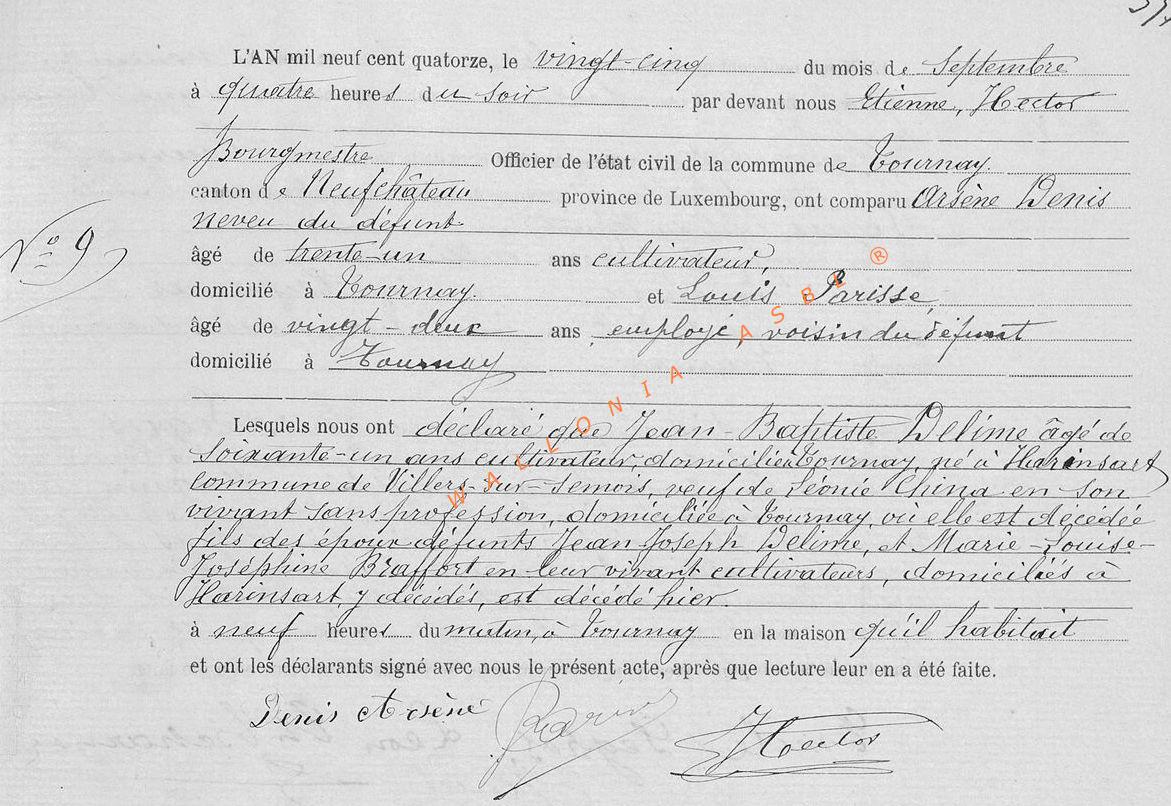 L'AN mil neuf cent quatorze, le vingt-cinq du mois de Septembre
à quatre heures du soir par devant nous Etienne, Hector
Bourgmestre Officier de l'état civil de la commune de Tournay.
canton de Neufchâteau province de Luxembourg, ont comparu Arsène Denis
neveu du défunt
N° 9
âgé de trente-un ans cultivateur,
domicilié à Tournay. et Louis Parisse,
âgé de vingt-deux ans employé, voisin du défunt
domicilié à Tournay
Lesquels nous ont déclaré que Jean-Baptiste Delime âgé de
soixante-un ans cultivateur, domicilié à Tournay, né à Harinsart
commune de Villers-sur-Semois, veuf de Léonie China en son
vivant sans profession, domiciliée à Tournay, où elle est décédée
fils des époux défunts Jean Joseph Delime, et Marie-Louise-
Joséphine Braffort en leur vivant cultivateurs, domiciliés à
Harinsart, y décédés, est décédé hier.
à neuf heures du matin, à Tournay en la maison qu'il habitait
et ont les déclarants signé avec nous le présent acte, après que lecture leur en a été faite.
Denis Arsène Hector
WALLONIA ASBL ®